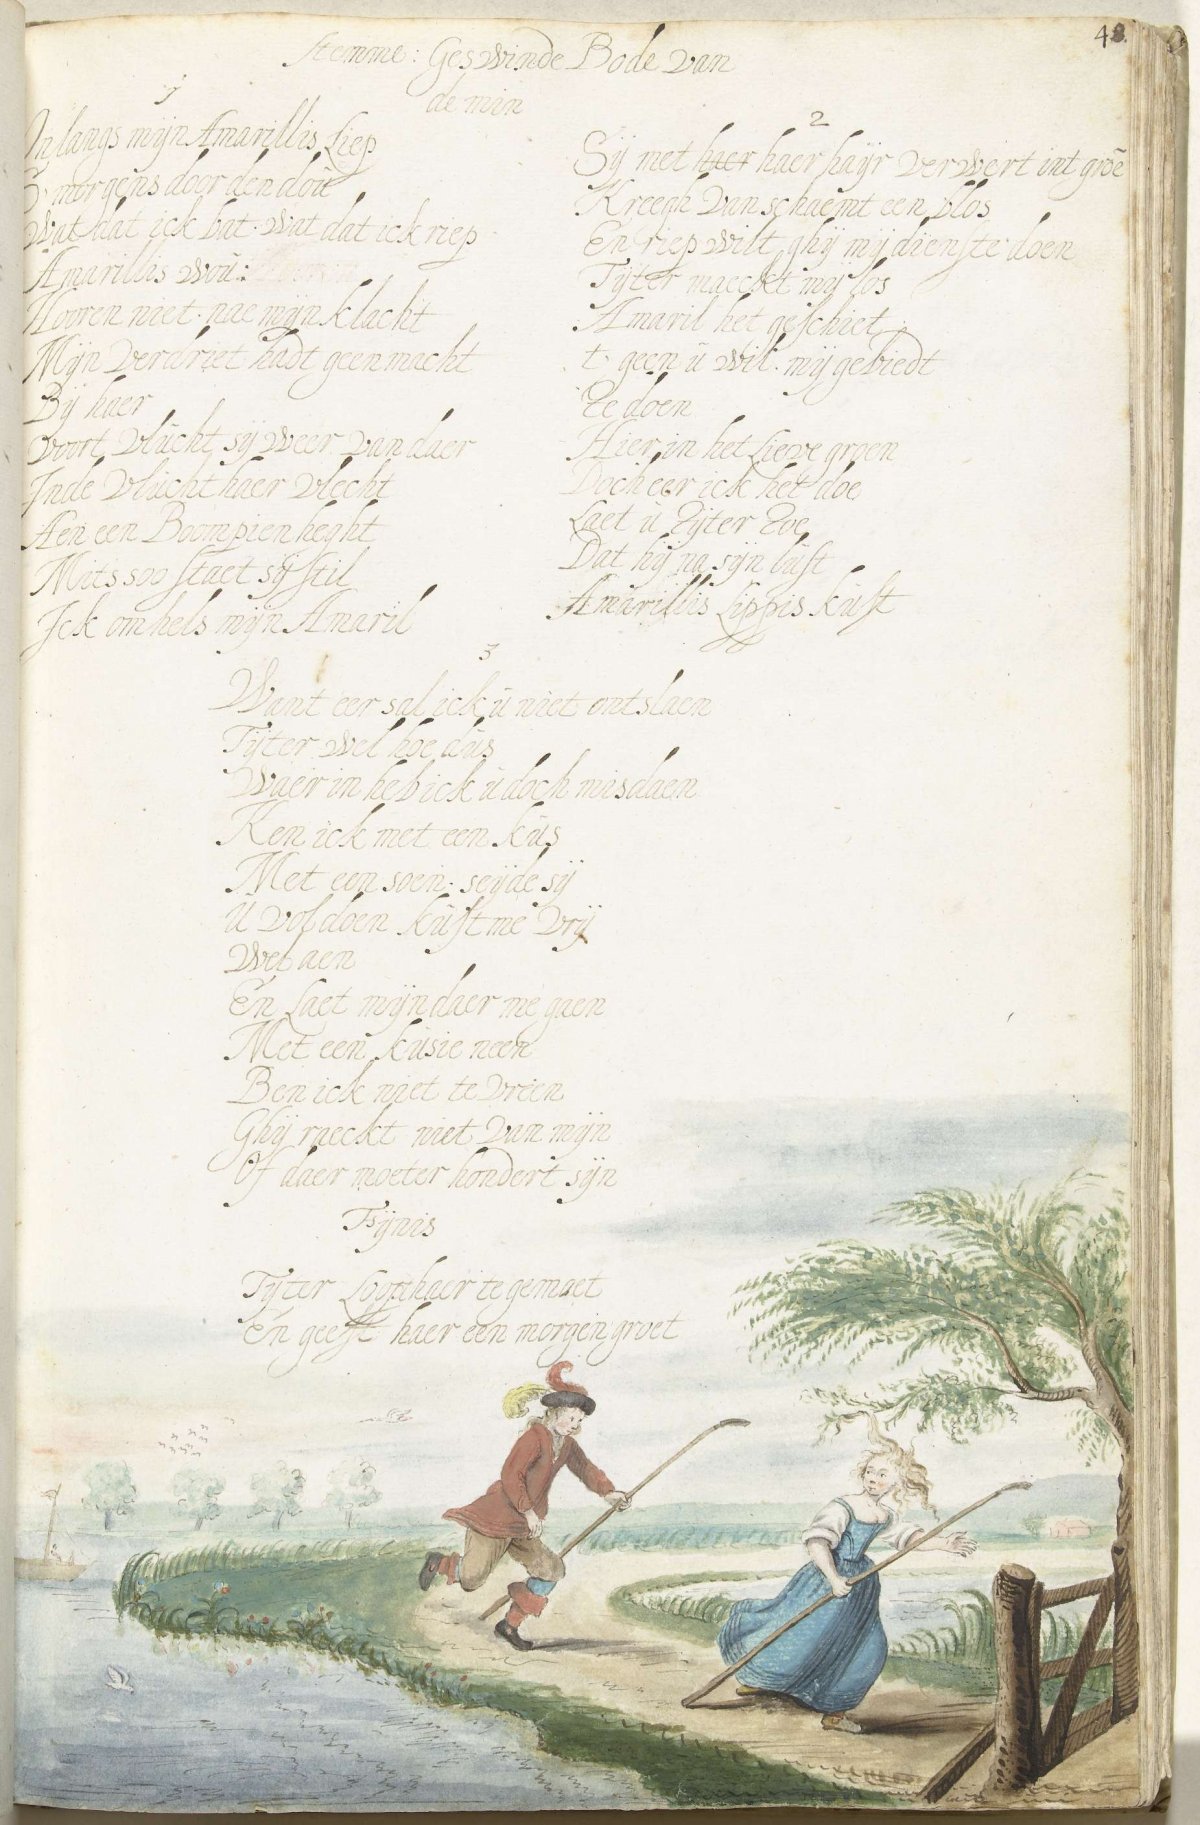 48
Stemme: Geswinde Bode van
de min
1
Onlangs mijn Amarillis Liep
S' morgens door den doŭ
Wat dat ick bat. wat dat ick riep
Amarillis woŭ:
Hooren niet. nae mijn klacht
Mijn verdriet hadt geen macht
Bij haer
voort vlŭcht sij weer van daer
Inde vlŭcht haer vlecht
Aen een Boompien heght
Mits soo staet sij stil
Ick omhels mijn Amaril
2
Sij met haer haer hayr verwert int groē
Kreegh van schaemt een blos
En riep wilt ghij mij dienste doen
Tijter maeckt mij los
Amaril het geschiet
t' geen ŭ wil. mij gebiedt
Te doen
Hier in het Lieve groen
Doch eer ick het doe
Laet ŭ Tijter Toe
Dat hij na sijn lŭst
Amarillis Lippis kŭst
3
Want eer sal ick ŭ niet ontslaen
Tijter wel hoe dŭs
Waer in heb ick ŭ doch misdaen
Ken ick met een kŭs
Met een soen. seijde sij
U voldoen kŭst me vrij
Wel aen
En Laet mijn daer me gaen
Met een kŭsie neen
Ben ick niet te vreen
Ghij raeckt niet van mijn
Of daer moeter hondert sijn
Fijnis
Tijter Loopt haer te gemoet
En geeft haer een morgen groet